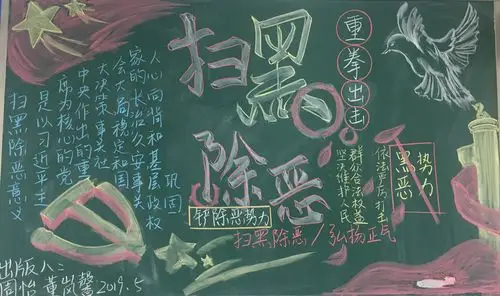 扫黑除恶意义
是以习近平主
席为核心的党
中央作出的重
大决策事关社
会大局稳定和国
家的长治久安事关
人心向背和基层政权
巩固
扫黑
除恶
重拳出击
铲除恶势力
坚决维护人民
群众合法权益
依法严厉打击
黑恶
势力
扫黑除恶/弘扬正气
出版人：
周怡 董岚馨2019.5